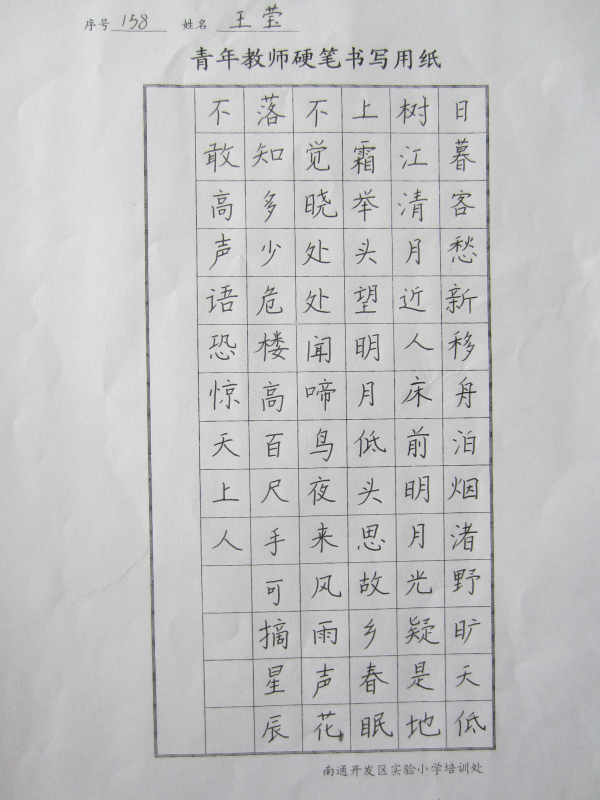 序号 158 姓名 王莹
青年教师硬笔书写用纸
日暮客愁新移舟泊烟渚野旷天低
树江清月近人床前明月光疑是地
上霜举头望明月低头思故乡春眠
不觉晓处处闻啼鸟夜来风雨声花
落知多少危楼高百尺手可摘星辰
不敢高声语恐惊天上人
南通开发区实验小学培训处